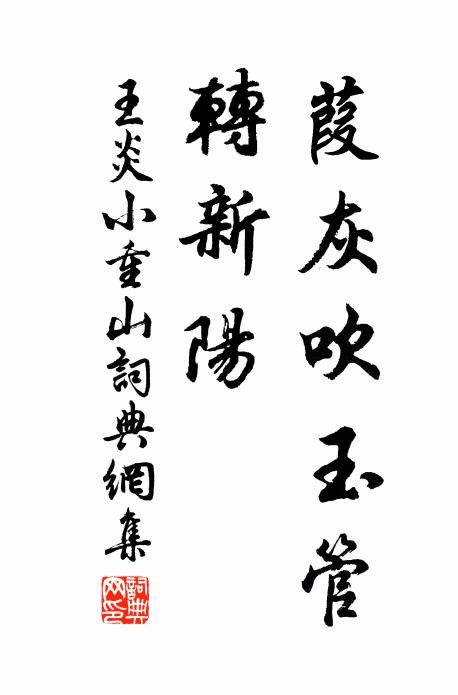 葭灰吹玉管
轉新陽
王炎小重山詞典網集
詞典網印